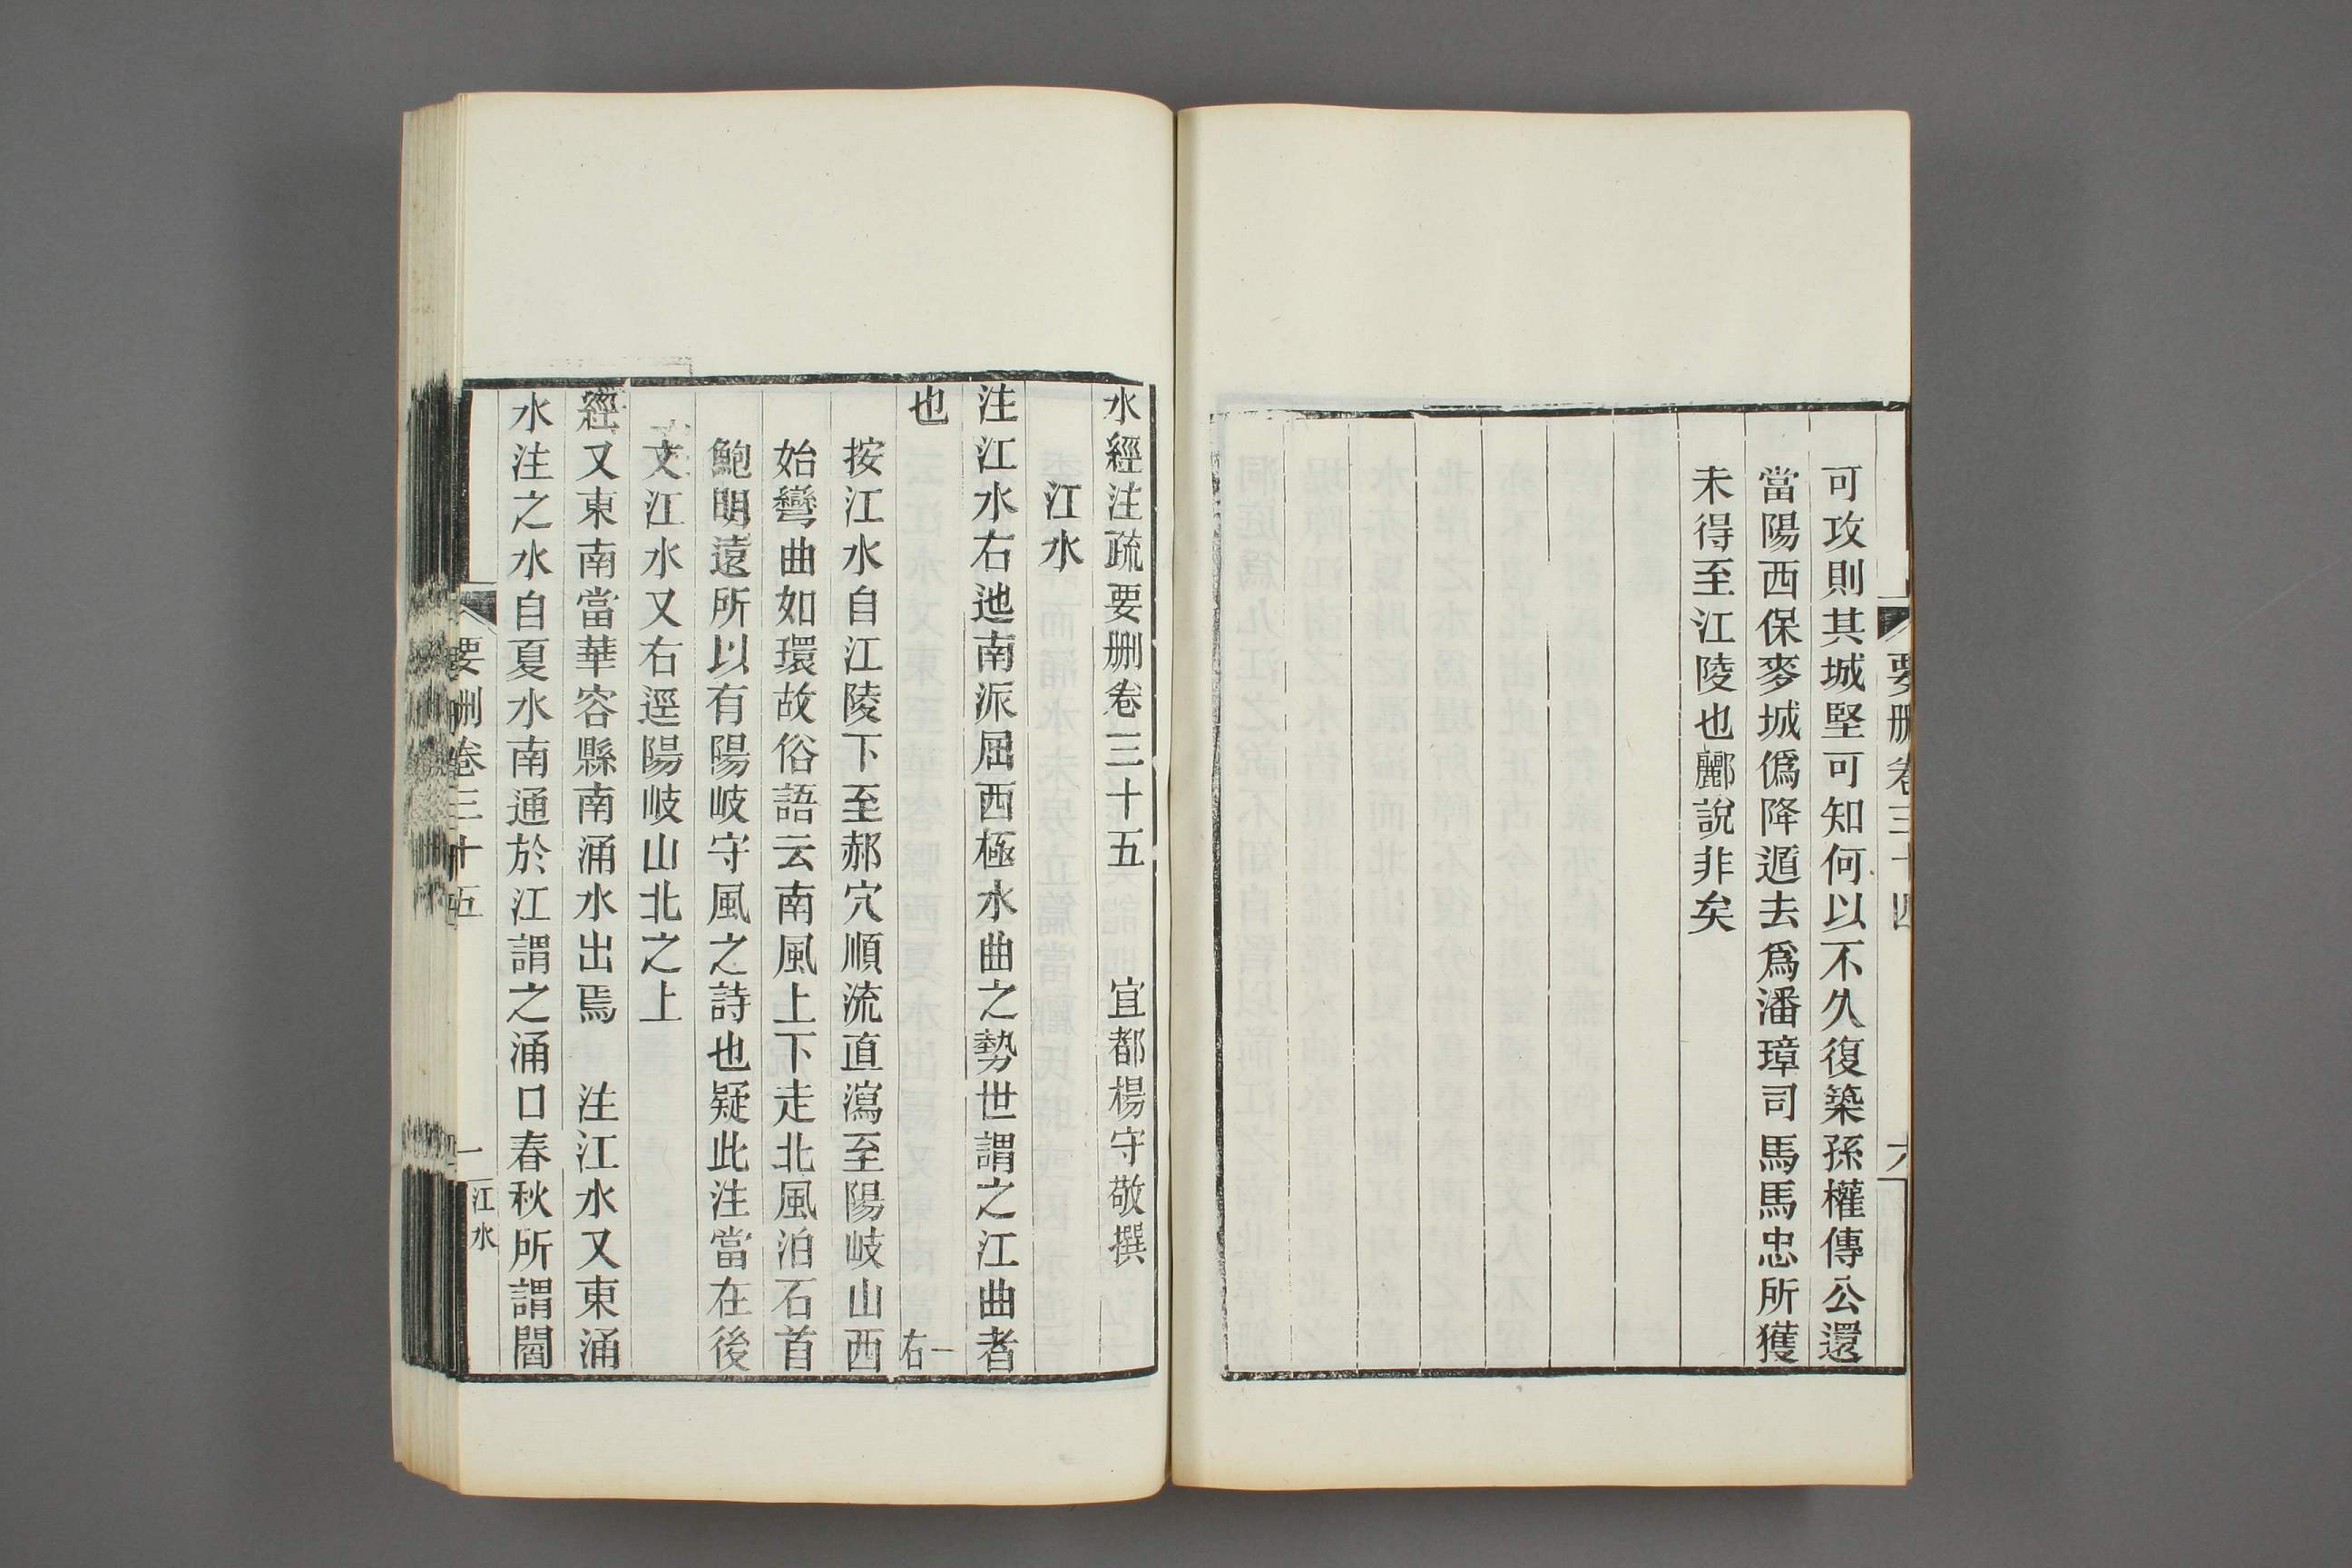 可攻則其城堅可知何以不久復築孫權傳公還
當陽西保麥城僞降遁去爲潘璋司馬馬忠所獲
未得至江陵也酈說非矣
要刪卷三十四 六
水經注疏要刪卷三十五 宜都楊守敬撰
江水
注江水右迆南派屈西極水曲之勢世謂之江曲者
也 一右
按江水自江陵下至郝穴順流直瀉至陽岐山西
始彎曲如環故俗語云南風上下走北風泊石首
鮑明遠所以有陽岐守風之詩也疑此注當在後
文江水又右逕陽岐山北之上
經又東南當華容縣南涌水出焉 注江水又東涌
水注之水自夏水南通於江謂之涌口春秋所謂閻
要刪卷三十五 一 江水